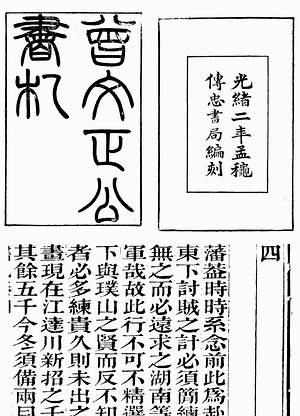 曾文正公
書札
光緒二年孟穐
傳忠書局編刻
四
藩葢時時系念前此為赴
東下討賊之計必須簡練
無之而必遠求之湖南等
軍哉故此行不可不精選
下與璞山之賢而反不知
者必多練貴久則未出之
畫現在江達川新招之千
其餘五千今冬須備兩